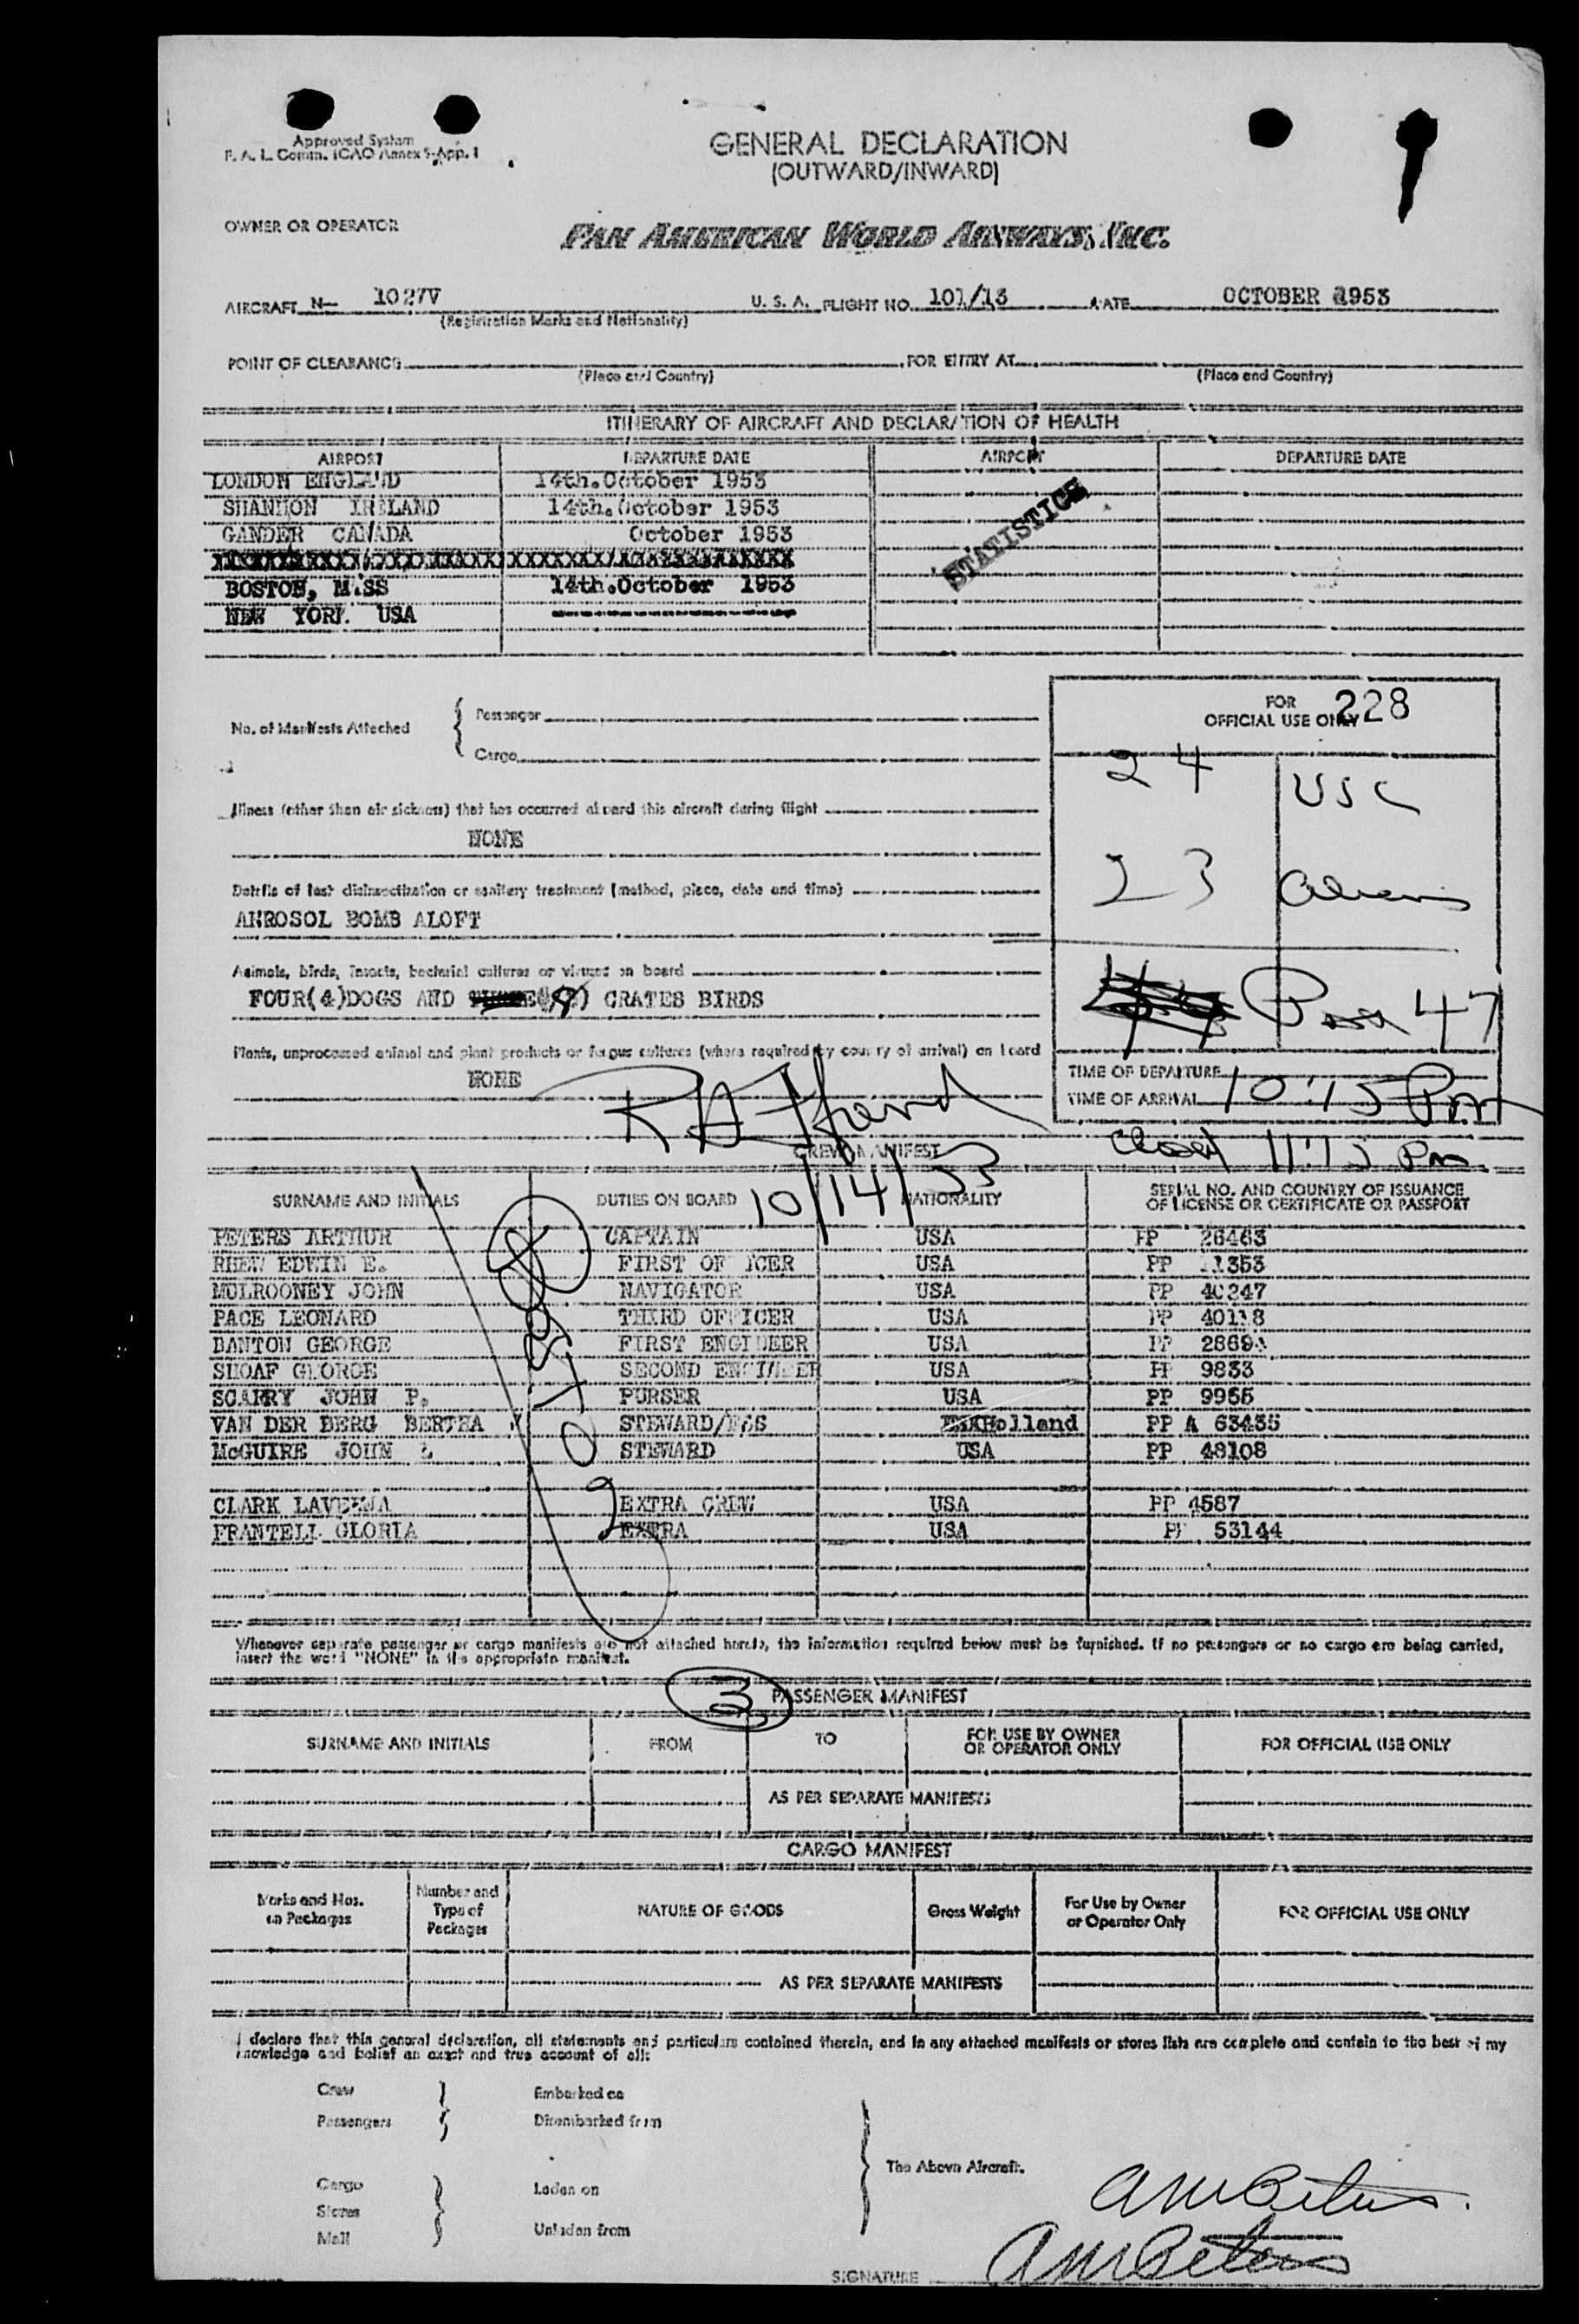 Approved System
F. A. L. Comm. ICAO Annex 9-App. 1
GENERAL DECLARATION
(OUTWARD/INWARD)
OWNER OR OPERATOR
PAN AMERICAN WORLD AIRWAYS, INC.
AIRCRAFT N- 1027V U. S. A. FLIGHT NO. 101/13 DATE OCTOBER 1953
(Registration Marks and Nationality)
POINT OF CLEARANCE FOR ENTRY AT
(Place and Country) (Place and Country)
ITINERARY OF AIRCRAFT AND DECLARATION OF HEALTH
AIRPORT DEPARTURE DATE AIRPORT DEPARTURE DATE
LONDON ENGLAND 14th.October 1953
SHANNON IRELAND 14th.October 1953
GANDER CANADA October 1953
STATISTICS
BOSTON, MASS 14th.October 1953
NEW YORK USA ----------------
No. of Manifests Attached
Passenger
Cargo
FOR
OFFICIAL USE ONLY
228
24 USC
Illness (other than air sickness) that has occurred aboard this aircraft during flight
NONE
23 Aliens
Details of last disinsectization or sanitary treatment (method, place, date and time)
AEROSOL BOMB ALOFT
Animals, birds, insects, bacterial cultures or viruses on board
FOUR(4)DOGS AND ) CRATES BIRDS
Pass 47
Plants, unprocessed animal and plant products or fungus cultures (where required by country of arrival) on board
NONE
TIME OF DEPARTURE
TIME OF ARRIVAL 10:15 Pm
Closed 11:15 Pm
CREW MANIFEST
10/14/53
SURNAME AND INITIALS DUTIES ON BOARD NATIONALITY SERIAL NO. AND COUNTRY OF ISSUANCE
OF LICENSE OR CERTIFICATE OR PASSPORT
PETERS ARTHUR CAPTAIN USA PP 26463
RHEW EDWIN E. FIRST OFFICER USA PP
MULROONEY JOHN NAVIGATOR USA PP 40247
PACE LEONARD THIRD OFFICER USA PP 40118
BANTON GEORGE FIRST ENGINEER USA PP
SHOAF GEORGE SECOND ENGINEER USA PP 9833
SCARRY JOHN P. PURSER USA PP 9955
VAN DER BERG BERTHA STEWARD/ESS Holland PP A 63435
McGUIRE JOHN STEWARD USA PP 48108
CLARK LAVERNA EXTRA CREW USA PP 4587
FRANTELL GLORIA EXTRA USA PP 53144
Whenever separate passenger or cargo manifests are not attached hereto, the information required below must be furnished. If no passengers or no cargo are being carried,
insert the word "NONE" in the appropriate manifest.
3
PASSENGER MANIFEST
SURNAME AND INITIALS FROM TO FOR USE BY OWNER
OR OPERATOR ONLY FOR OFFICIAL USE ONLY
AS PER SEPARATE MANIFESTS
CARGO MANIFEST
Marks and Nos.
on Packages Number and
Type of
Packages NATURE OF GOODS Gross Weight For Use by Owner
or Operator Only FOR OFFICIAL USE ONLY
AS PER SEPARATE MANIFESTS
I declare that this general declaration, all statements and particulars contained therein, and in any attached manifests or stores lists are complete and contain to the best of my
knowledge and belief an exact and true account of all:
Crew Embarked on
Passengers Disembarked from
The Above Aircraft.
Cargo Laden on
Stores
Mail Unladen from
AMPeters.
SIGNATURE AMPeters